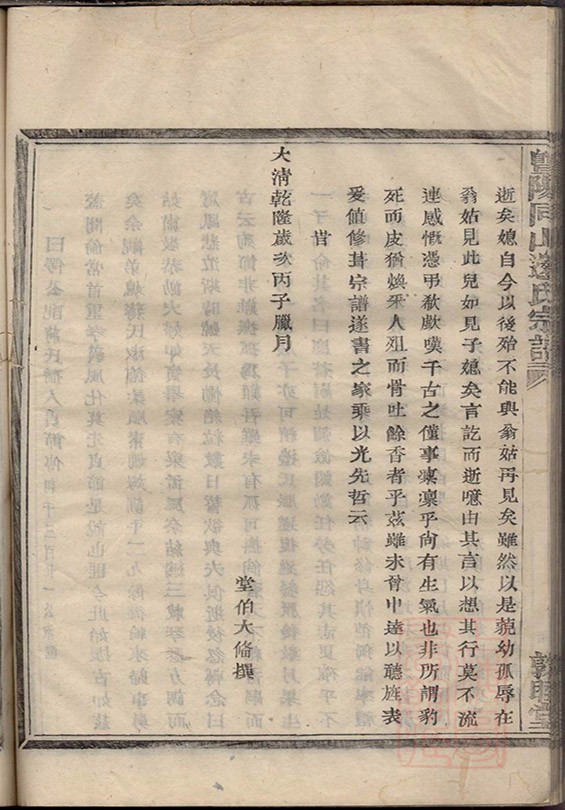 逝矣媳自今以後殆不能與翁姑再見矣雖然以是藐幼孤辱在
翁姑見此兒如見子媳矣言訖而逝噫由其言以想其行莫不流
連感慨憑弔欷歔嘆千古之僅事稟稟乎尚有生氣也非所謂豹
死而皮猶煥釆人殂而骨吐餘香者乎茲雖未曾申達以聽旌表
爰值修葺宗譜遂書之家乘以光先哲云
旹
大清乾隆歲次丙子臘月
堂伯大脩撰
暨陽同山邊氏宗譜
敦睦堂